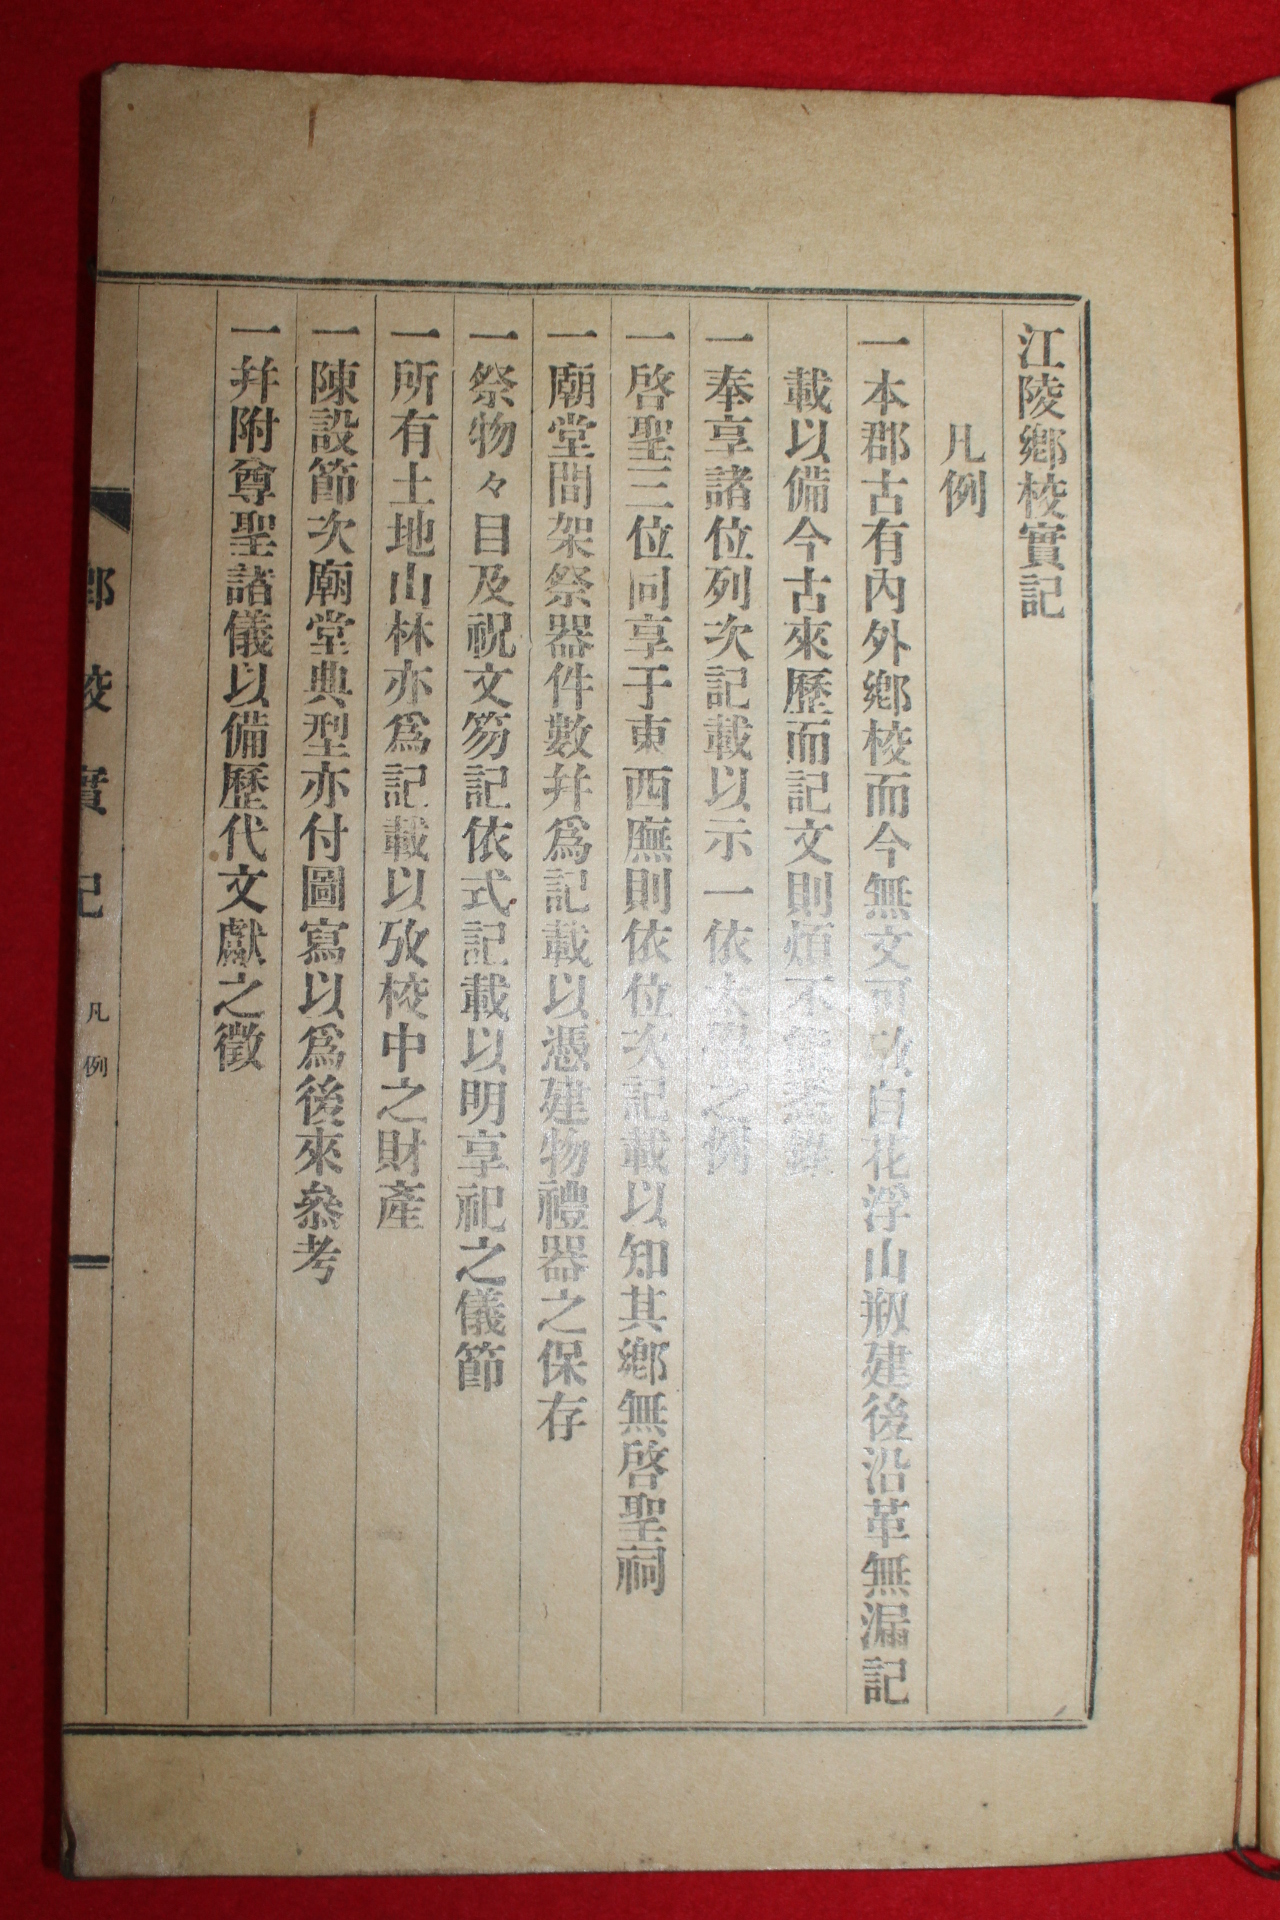 江陵鄕校實記
凡例
一本郡古有內外鄕校而今無文可攷自花浮山刱建後沿革無漏記
載以備今古來歷而記文則煩不
一奉享諸位列次記載以示一依太之例
一啓聖三位同享于東西廡則依位次記載以知其鄕無啓聖祠
一廟堂間架祭器件數幷爲記載以憑建物禮器之保存
一祭物々目及祝文笏記依式記載以明享祀之儀節
一所有土地山林亦爲記載以攷校中之財產
一陳設節次廟堂典型亦付圖寫以爲後來叅考
一幷附尊聖諸儀以備歷代文獻之徵
鄕校實記 凡例 一